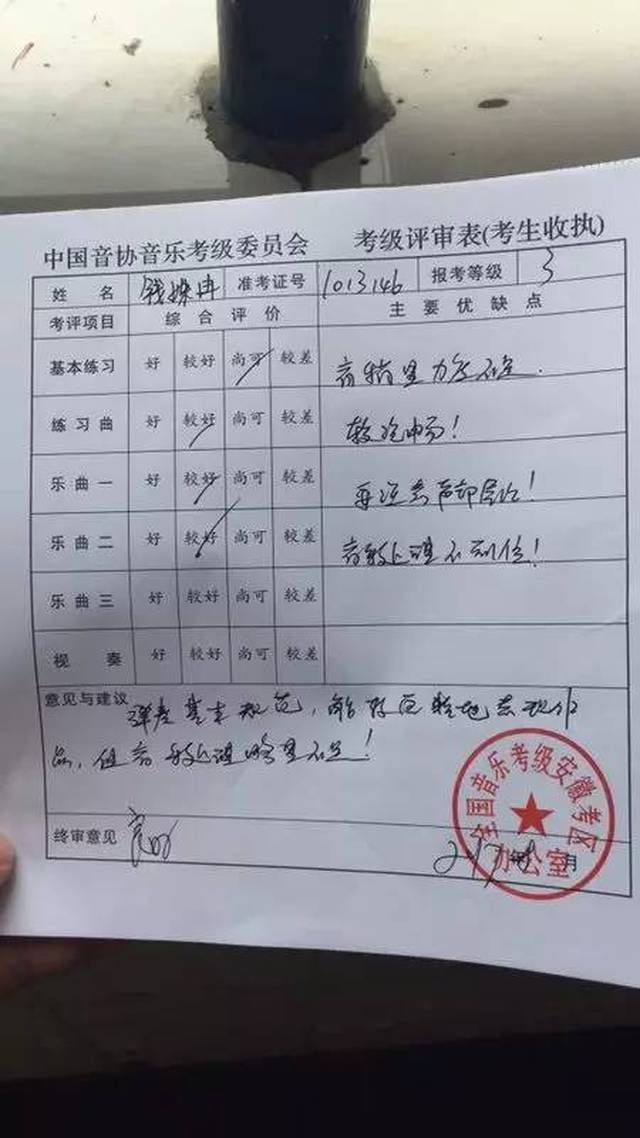 中国音协音乐考级委员会 考级评审表(考生收执)
姓名 钱 准考证号 1013146 报考等级 3
考评项目 综合评价 主要优缺点
基本练习 好 较好 尚可 较差
练习曲 好 较好 尚可 较差 较流畅!
乐曲一 好 较好 尚可 较差
乐曲二 好 较好 尚可 较差 不到位!
乐曲三 好 较好 尚可 较差
视奏 好 较好 尚可 较差
意见与建议 弹奏基本规范,能较完整地表现作
品,但音 处理略显不足!
终审意见 良好
2017年8月
全国音乐考级安徽考区
办公室